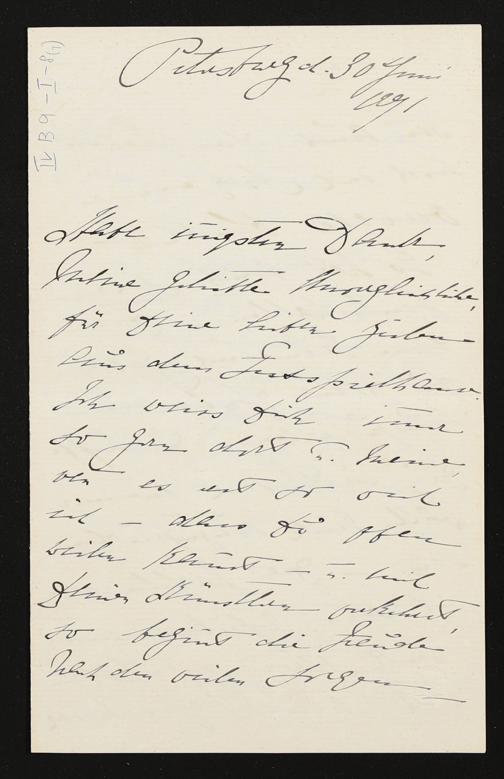 IV B 9 – I – 8 (1)
Petersburg d. 30 Juni
1891
Habe innigsten Dank,
Meine geliebte Unvergleichliche,
für Deine lieben Zeilen
aus dem Festspielhause.
Ich weiss Dich immer
so gern dort u. meine,
wen es erst so weit
ist – dass Du oben
weilen kannst – u. mit
Deinen Künstlern verkehrst,
so begint die Freude
nach den vielen Sorgen –